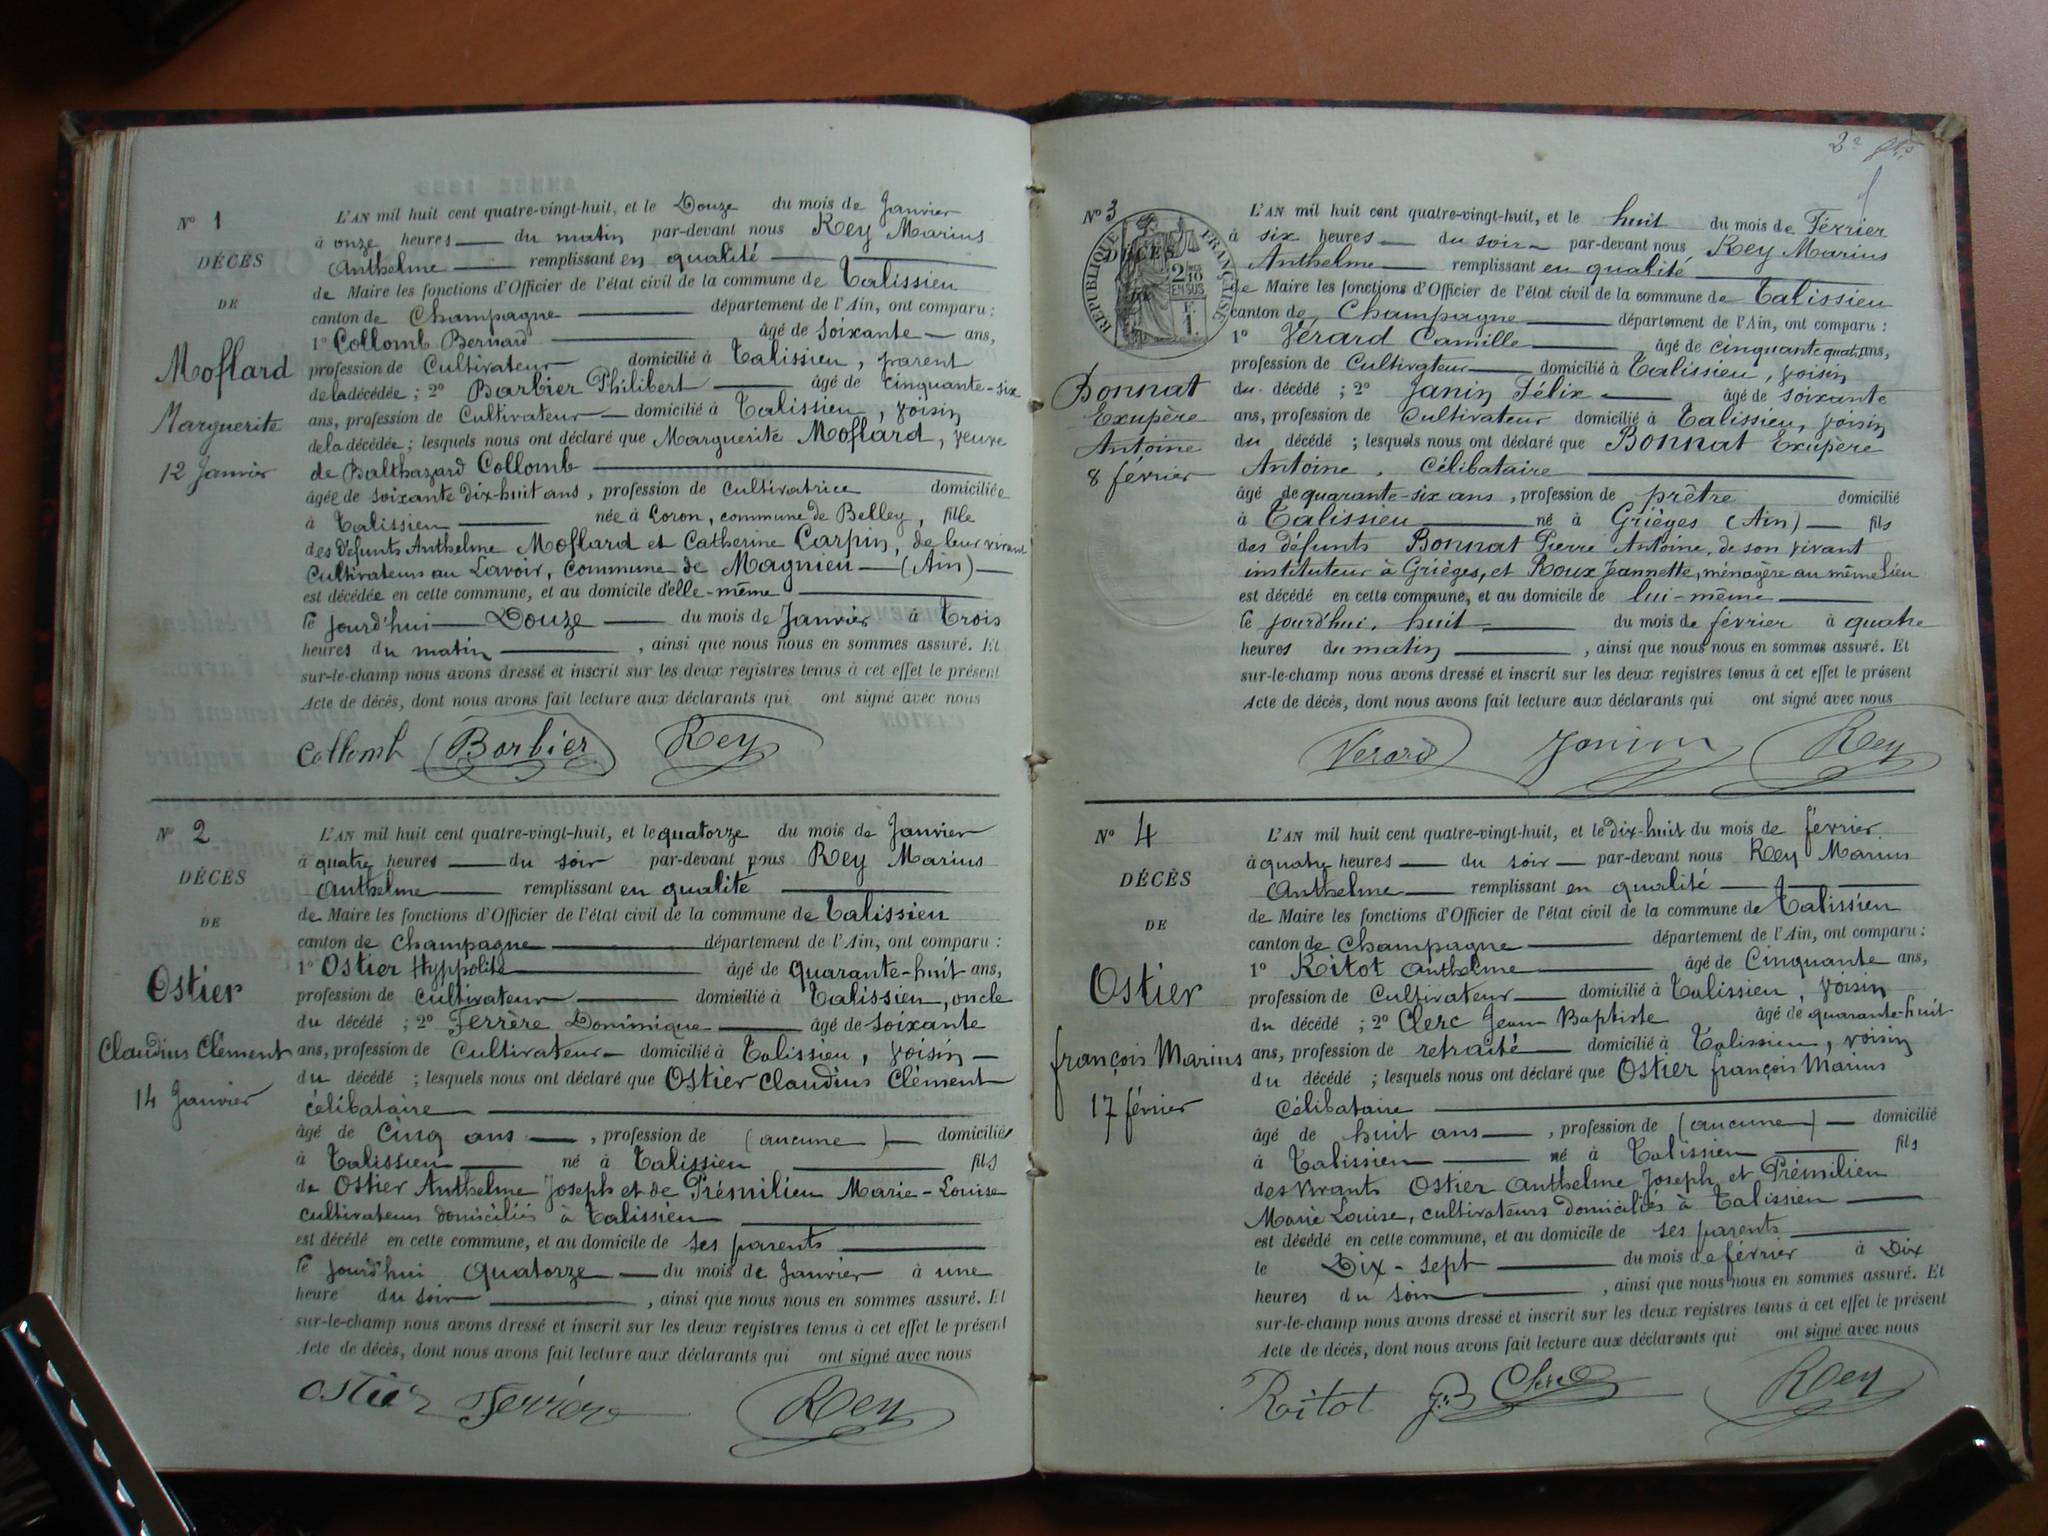 N° 1
DÉCÈS
DE
Moflard
Marguerite
12 Janvier
L'AN mil huit cent quatre-vingt-huit, et le Douze du mois de Janvier
à onze heures du matin par-devant nous Rey Marius
Anthelme remplissant en qualité
de Maire les fonctions d'Officier de l'état civil de la commune de Talissieu
canton de Champagne département de l'Ain, ont comparu :
1° Collomb Bernard âgé de soixante ans,
profession de Cultivateur domicilié à Talissieu, parent
de la décédée ; 2° Barbier Philibert âgé de cinquante-six
ans, profession de Cultivateur domicilié à Talissieu, voisin
de la décédée ; lesquels nous ont déclaré que Marguerite Moflard, veuve
de Balthazard Collomb
âgée de soixante dix-huit ans, profession de cultivatrice domiciliée
à Talissieu née à Coron, commune de Belley, fille
des défunts Anthelme Moflard et Catherine Carpin, de leur vivant
cultivateurs au Lavoir, commune de Magnieu (Ain)
est décédée en cette commune, et au domicile d'elle-même
le jourd'hui Douze du mois de Janvier à Trois
heures du matin , ainsi que nous nous en sommes assuré. Et
sur-le-champ nous avons dressé et inscrit sur les deux registres tenus à cet effet le présent
Acte de décès, dont nous avons fait lecture aux déclarants qui ont signé avec nous
Collomb Barbier Rey
N° 2
DÉCÈS
DE
Ostier
Claudius Clément
14 Janvier
L'AN mil huit cent quatre-vingt-huit, et le quatorze du mois de Janvier
à quatre heures du soir par-devant nous Rey Marius
Anthelme remplissant en qualité
de Maire les fonctions d'Officier de l'état civil de la commune de Talissieu
canton de Champagne département de l'Ain, ont comparu :
1° Ostier Hyppolite âgé de quarante-huit ans,
profession de cultivateur domicilié à Talissieu, oncle
du décédé ; 2° Ferrère Dominique âgé de soixante
ans, profession de Cultivateur domicilié à Talissieu, voisin
du décédé ; lesquels nous ont déclaré que Ostier Claudius Clément
célibataire
âgé de Cinq ans , profession de (aucune) domicilié
à Talissieu né à Talissieu fils
de Ostier Anthelme Joseph et de Prémilieu Marie-Louise
cultivateurs domiciliés à Talissieu
est décédé en cette commune, et au domicile de ses parents
le jourd'hui quatorze du mois de Janvier à une
heure du soir , ainsi que nous nous en sommes assuré. Et
sur-le-champ nous avons dressé et inscrit sur les deux registres tenus à cet effet le présent
Acte de décès, dont nous avons fait lecture aux déclarants qui ont signé avec nous
Ostier Ferrère Rey
N° 3
DÉCÈS
RÉPUBLIQUE FRANÇAISE
2/10
EN SUS
F.
1.
Bonnat
Exupère
Antoine
8 février
L'AN mil huit cent quatre-vingt-huit, et le huit du mois de Février
à six heures du soir par-devant nous Rey Marius
Anthelme remplissant en qualité
de Maire les fonctions d'Officier de l'état civil de la commune de Talissieu
canton de Champagne département de l'Ain, ont comparu :
1° Vérard Camille âgé de cinquante quatre ans,
profession de Cultivateur domicilié à Talissieu, voisin
du décédé ; 2° Janin Félix âgé de soixante
ans, profession de Cultivateur domicilié à Talissieu, voisin
du décédé ; lesquels nous ont déclaré que Bonnat Exupère
Antoine, Célibataire
âgé de quarante-six ans , profession de prêtre domicilié
à Talissieu né à Grièges (Ain) fils
des défunts Bonnat Pierre Antoine, de son vivant
instituteur à Grièges, et Roux Jeannette, ménagère au même lieu
est décédé en cette commune, et au domicile de lui-même
le jourd'hui, huit du mois de février à quatre
heures du matin , ainsi que nous nous en sommes assuré. Et
sur-le-champ nous avons dressé et inscrit sur les deux registres tenus à cet effet le présent
Acte de décès, dont nous avons fait lecture aux déclarants qui ont signé avec nous
Verard Janin Rey
N° 4
DÉCÈS
DE
Ostier
françois Marius
17 février
L'AN mil huit cent quatre-vingt-huit, et le dix-huit du mois de février
à quatre heures du soir par-devant nous Rey Marius
Anthelme remplissant en qualité
de Maire les fonctions d'Officier de l'état civil de la commune de Talissieu
canton de Champagne département de l'Ain, ont comparu :
1° Ritot Anthelme âgé de Cinquante ans,
profession de Cultivateur domicilié à Talissieu, voisin
du décédé ; 2° Clerc Jean Baptiste âgé de quarante-huit
ans, profession de retraité domicilié à Talissieu, voisin
du décédé ; lesquels nous ont déclaré que Ostier françois Marius
Célibataire
âgé de huit ans , profession de (aucune) domicilié
à Talissieu né à Talissieu fils
des vivants Ostier Anthelme Joseph et Prémilieu
Marie Louise, cultivateurs domiciliés à Talissieu
est décédé en cette commune, et au domicile de ses parents
le Dix-sept du mois de février à Dix
heures du soir , ainsi que nous nous en sommes assuré. Et
sur-le-champ nous avons dressé et inscrit sur les deux registres tenus à cet effet le présent
Acte de décès, dont nous avons fait lecture aux déclarants qui ont signé avec nous
Ritot J.B Clerc Rey